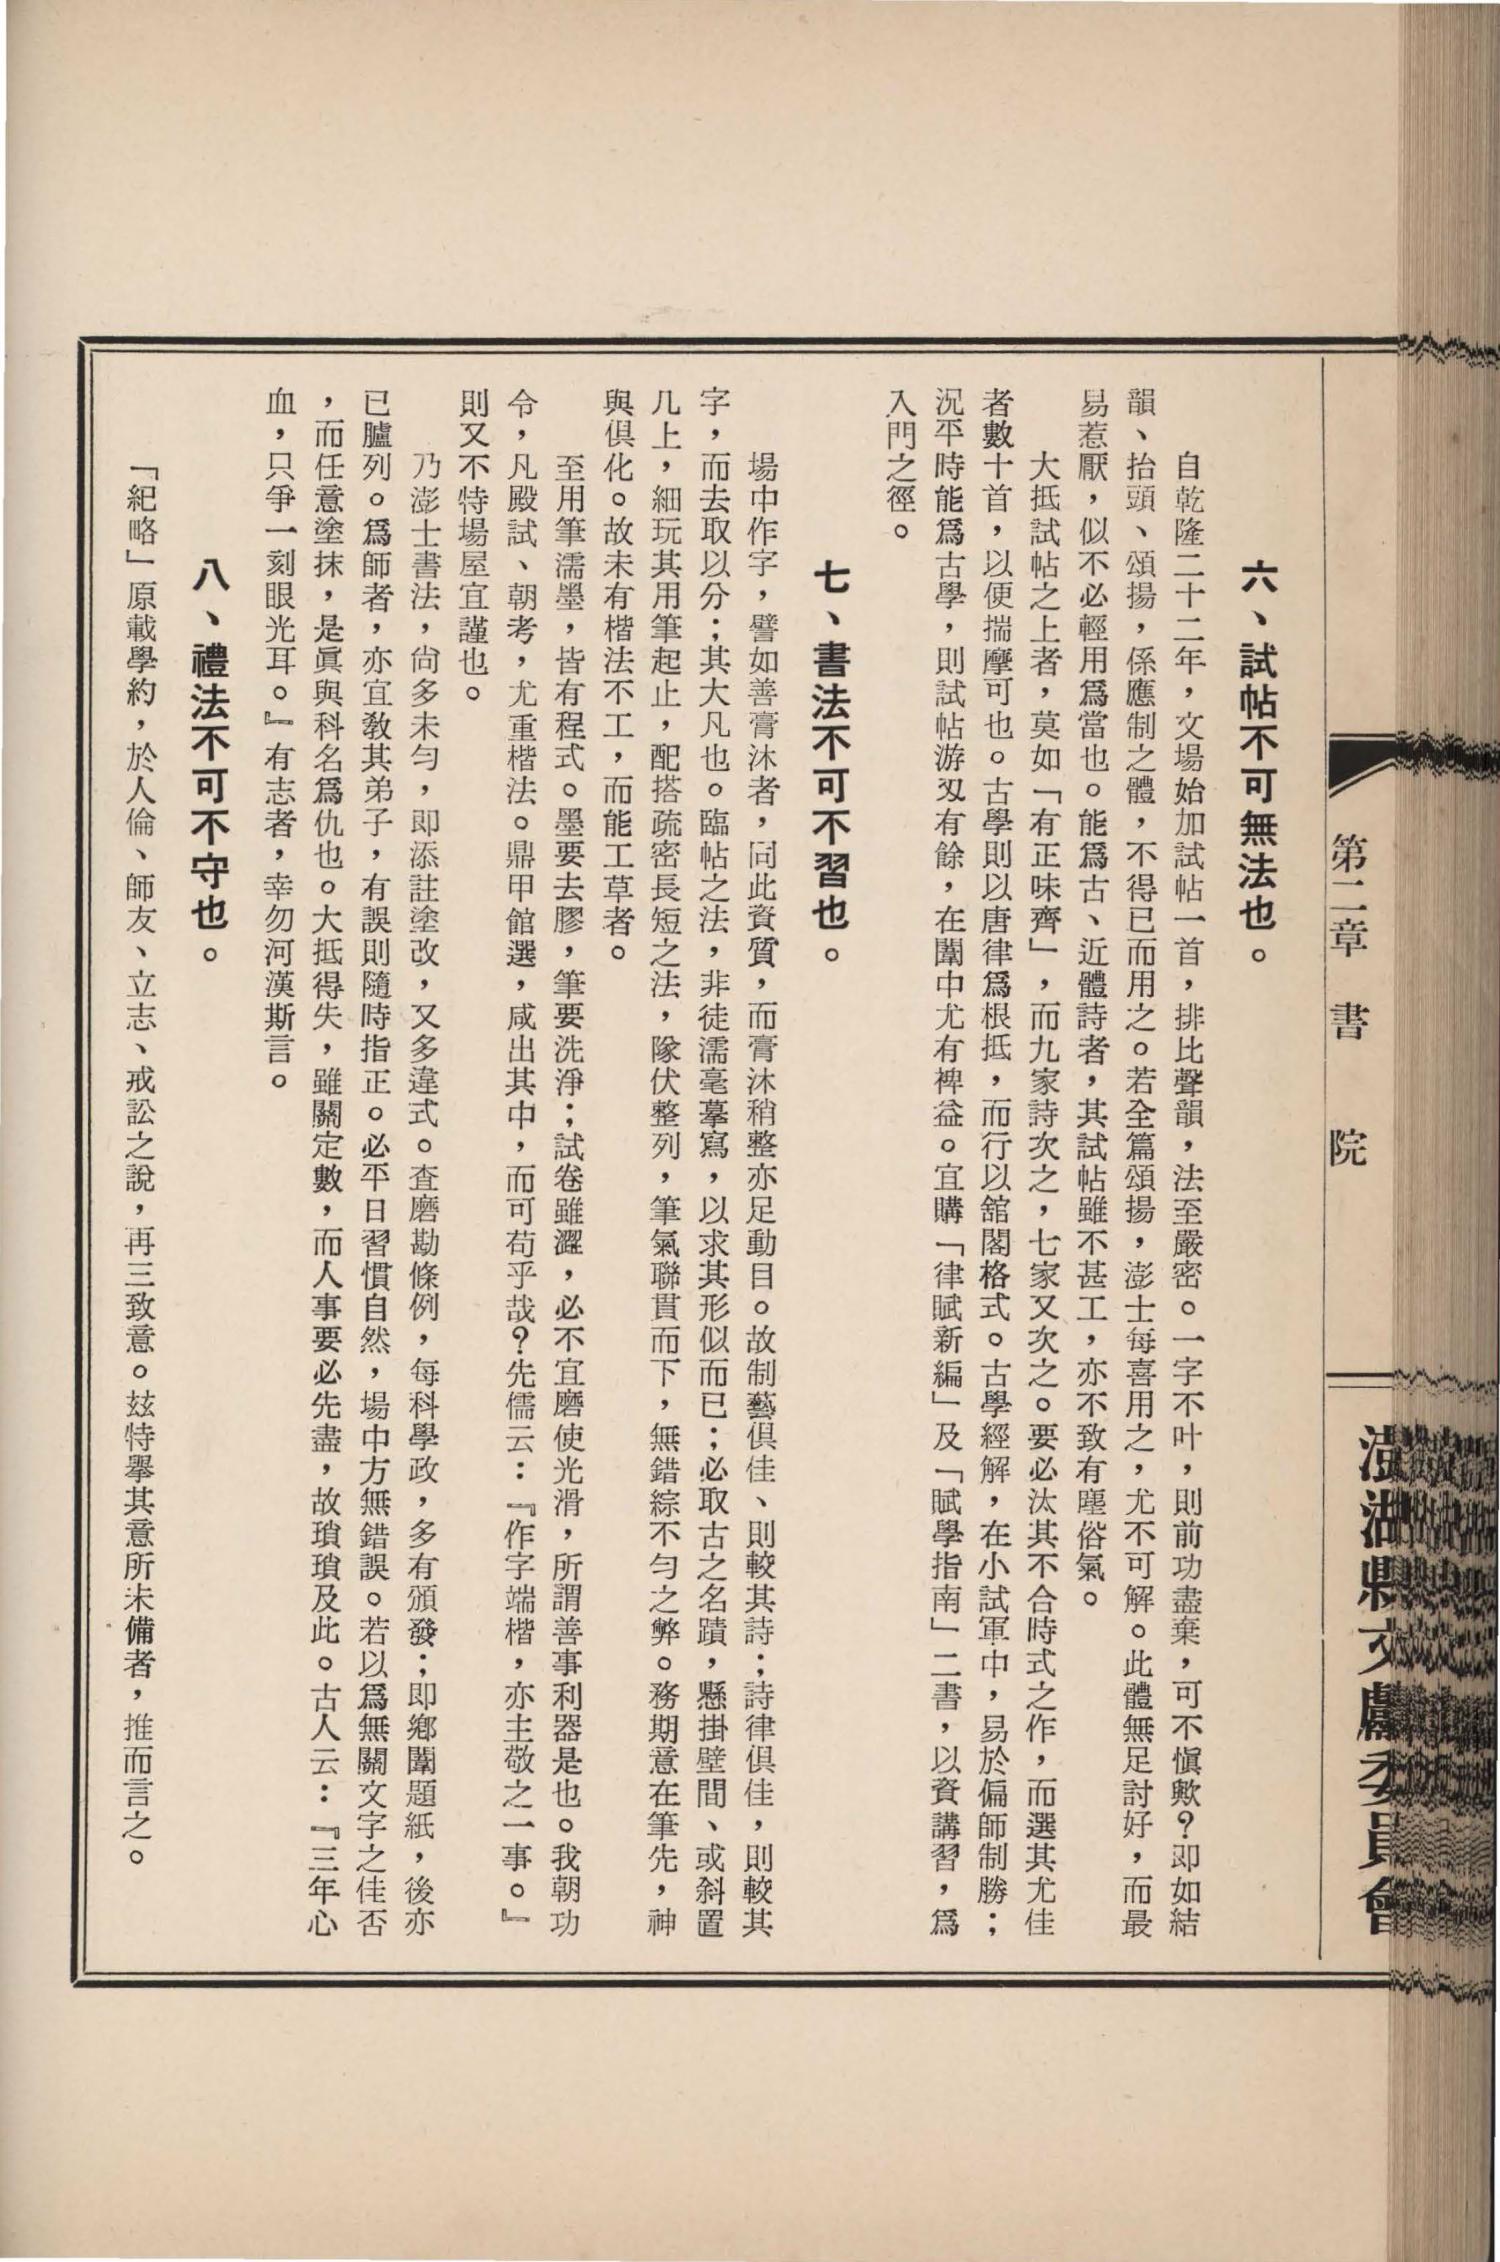 第二章　書　院
澎湖縣文獻委員會
六、試帖不可無法也。
自乾隆二十二年，文場始加試帖一首，排比聲韻，法至嚴密。一字不叶，則前功盡棄，可不愼歟？即如結
韻、抬頭、頌揚，係應制之體，不得已而用之。若全篇頌揚，澎士每喜用之，尤不可解。此體無足討好，而最
易惹厭，似不必輕用爲當也。能爲古、近體詩者，其試帖雖不甚工，亦不致有塵俗氣。
大抵試帖之上者，莫如「有正味齊」，而九家詩次之，七家又次之。要必汰其不合時式之作，而選其尤佳
者數十首，以便揣摩可也。古學則以唐律爲根抵，而行以舘閣格式。古學經解，在小試軍中，易於偏師制勝；
況平時能爲古學，則試帖游刄有餘，在闈中尤有裨益。宜購「律賦新編」及「賦學指南」二書，以資講習，爲
入門之徑。
七、書法不可不習也。
場中作字，譬如善膏沐者，同此資質，而膏沐稍整亦足動目。故制藝俱佳、則較其詩；詩律俱佳，則較其
字，而去取以分；其大凡也。臨帖之法，非徒濡毫摹寫，以求其形似而已；必取古之名蹟，懸掛壁間、或斜置
几上，細玩其用筆起止，配搭疏密長短之法，隊伏整列，筆氣聯貫而下，無錯綜不勻之弊。務期意在筆先，神
與俱化。故未有楷法不工，而能工草者。
至用筆濡墨，皆有程式。墨要去膠，筆要洗淨；試卷雖澀，必不宜磨使光滑，所謂善事利器是也。我朝功
令，凡殿試、朝考，尤重楷法。鼎甲館選，咸出其中，而可苟乎哉？先儒云：『作字端楷，亦主敬之一事。』
則又不特場屋宜謹也。
乃澎士書法，尙多未勻，即添註塗改，又多違式。查磨勘條例，每科學政，多有頒發；即鄕闈題紙，後亦
已臚列。爲師者，亦宜敎其弟子，有誤則隨時指正。必平日習慣自然，場中方無錯誤。若以爲無關文字之佳否
，而任意塗抹，是眞與科名爲仇也。大抵得失，雖關定數，而人事要必先盡，故瑣瑣及此。古人云：『三年心
血，只爭一刻眼光耳。』有志者，幸勿河漢斯言。
八、禮法不可不守也。
「紀略」原載學約，於人倫、師友、立志、戒訟之說，再三致意。玆特擧其意所未備者，推而言之。